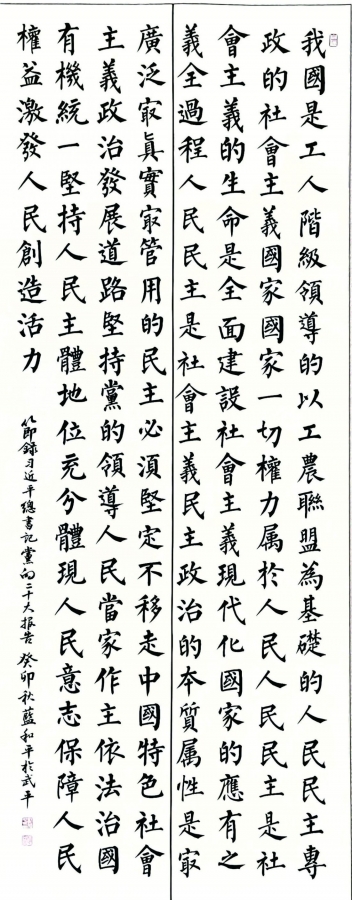 我國是工人階級領導的以工農聯盟為基礎的人民民主專
政的社會主義國家國家一切權力属於人民人民民主是社
會主義的生命是全面建設社會主義現代化國家的應有之
義全過程人民民主是社會主義民主政治的本質属性是㝡
廣泛㝡真實㝡管用的民主必須堅定不移走中國特色社會
主義政治發展道路堅持黨的領導人民當家作主依法治國
有機統一堅持人民主體地位充分體現人民意志保障人民
權益激發人民創造活力
節錄習近平總書記黨的二十大报告 癸卯秋藍和平於武平